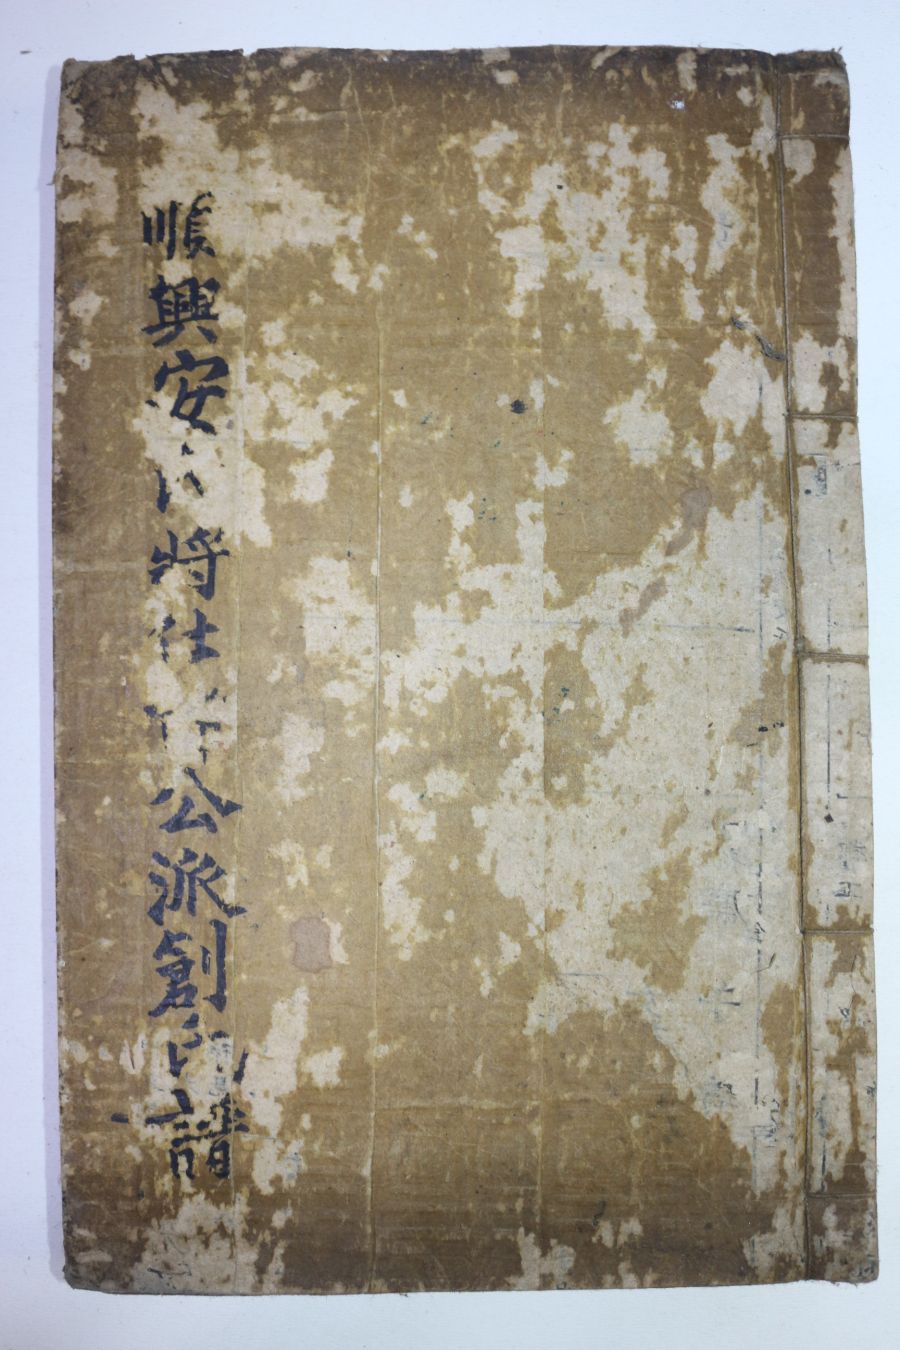 順興安氏將仕郎公派創
譜